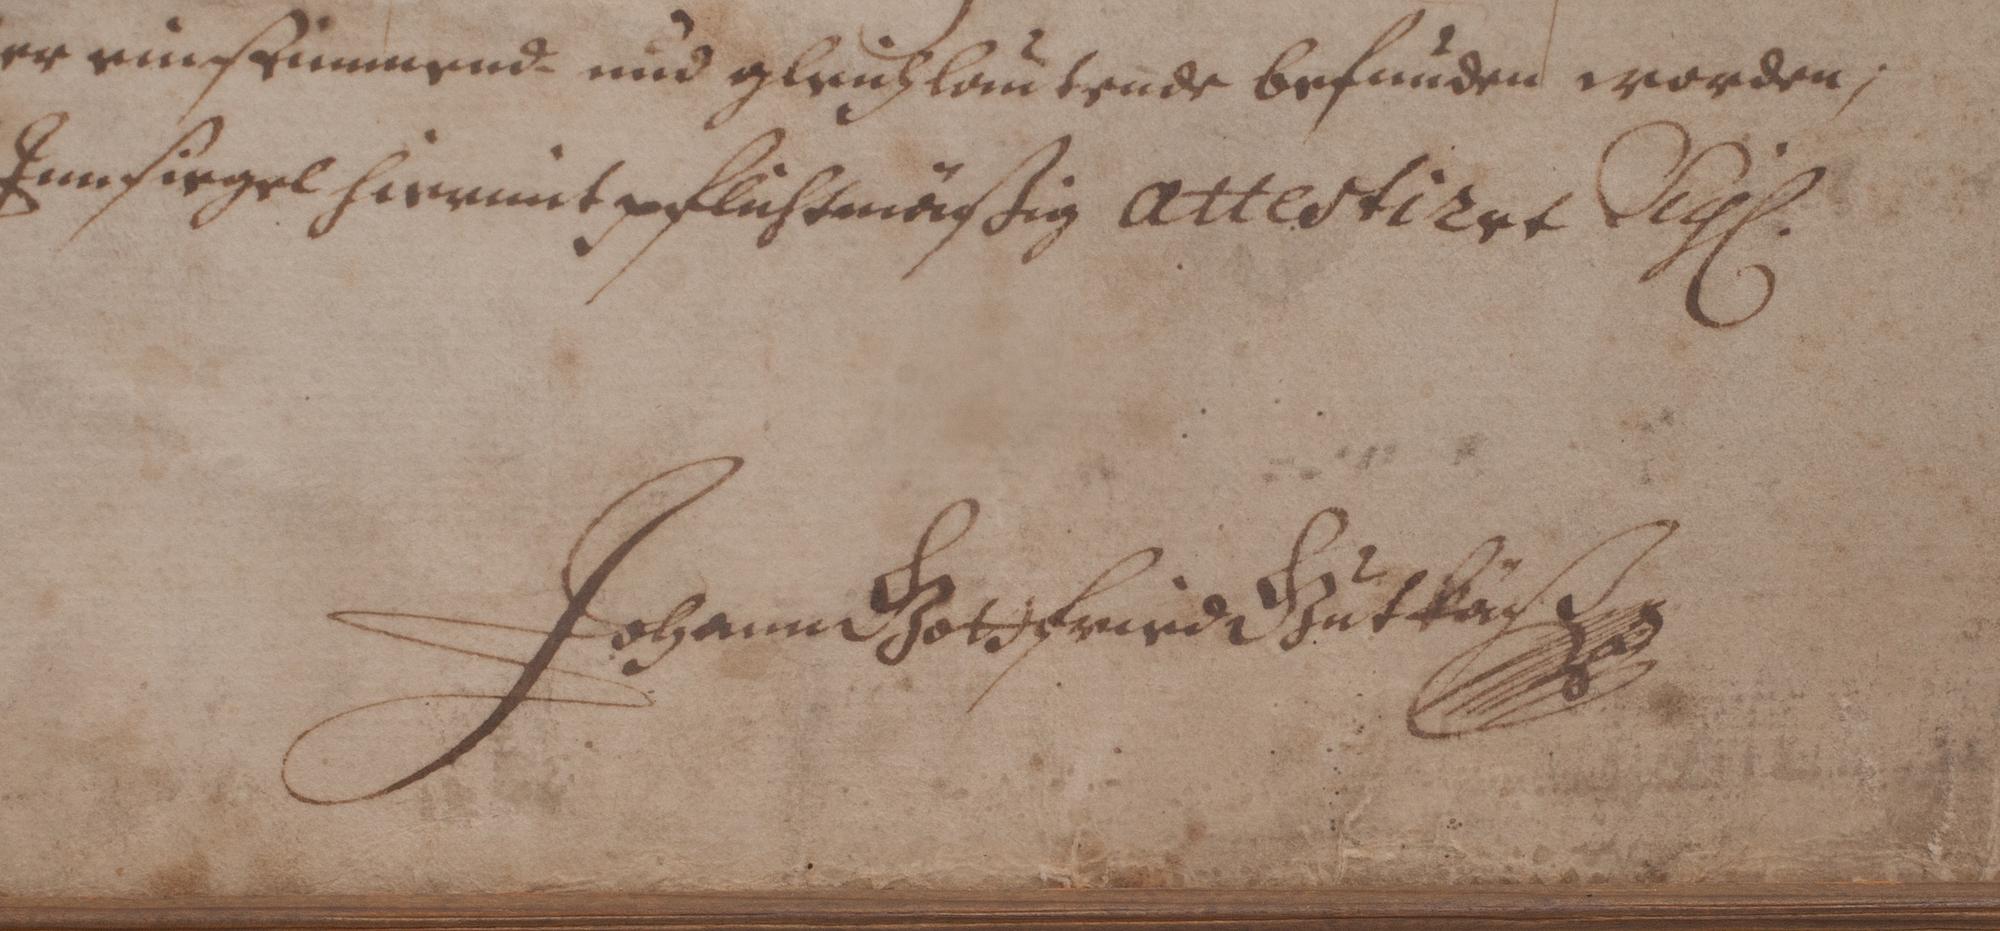 er einstimmend- und gleichlautende befunden worden;
Innsiegel hiermit pflichtmäßig attestiret
Johann Gottfried Gutkäß